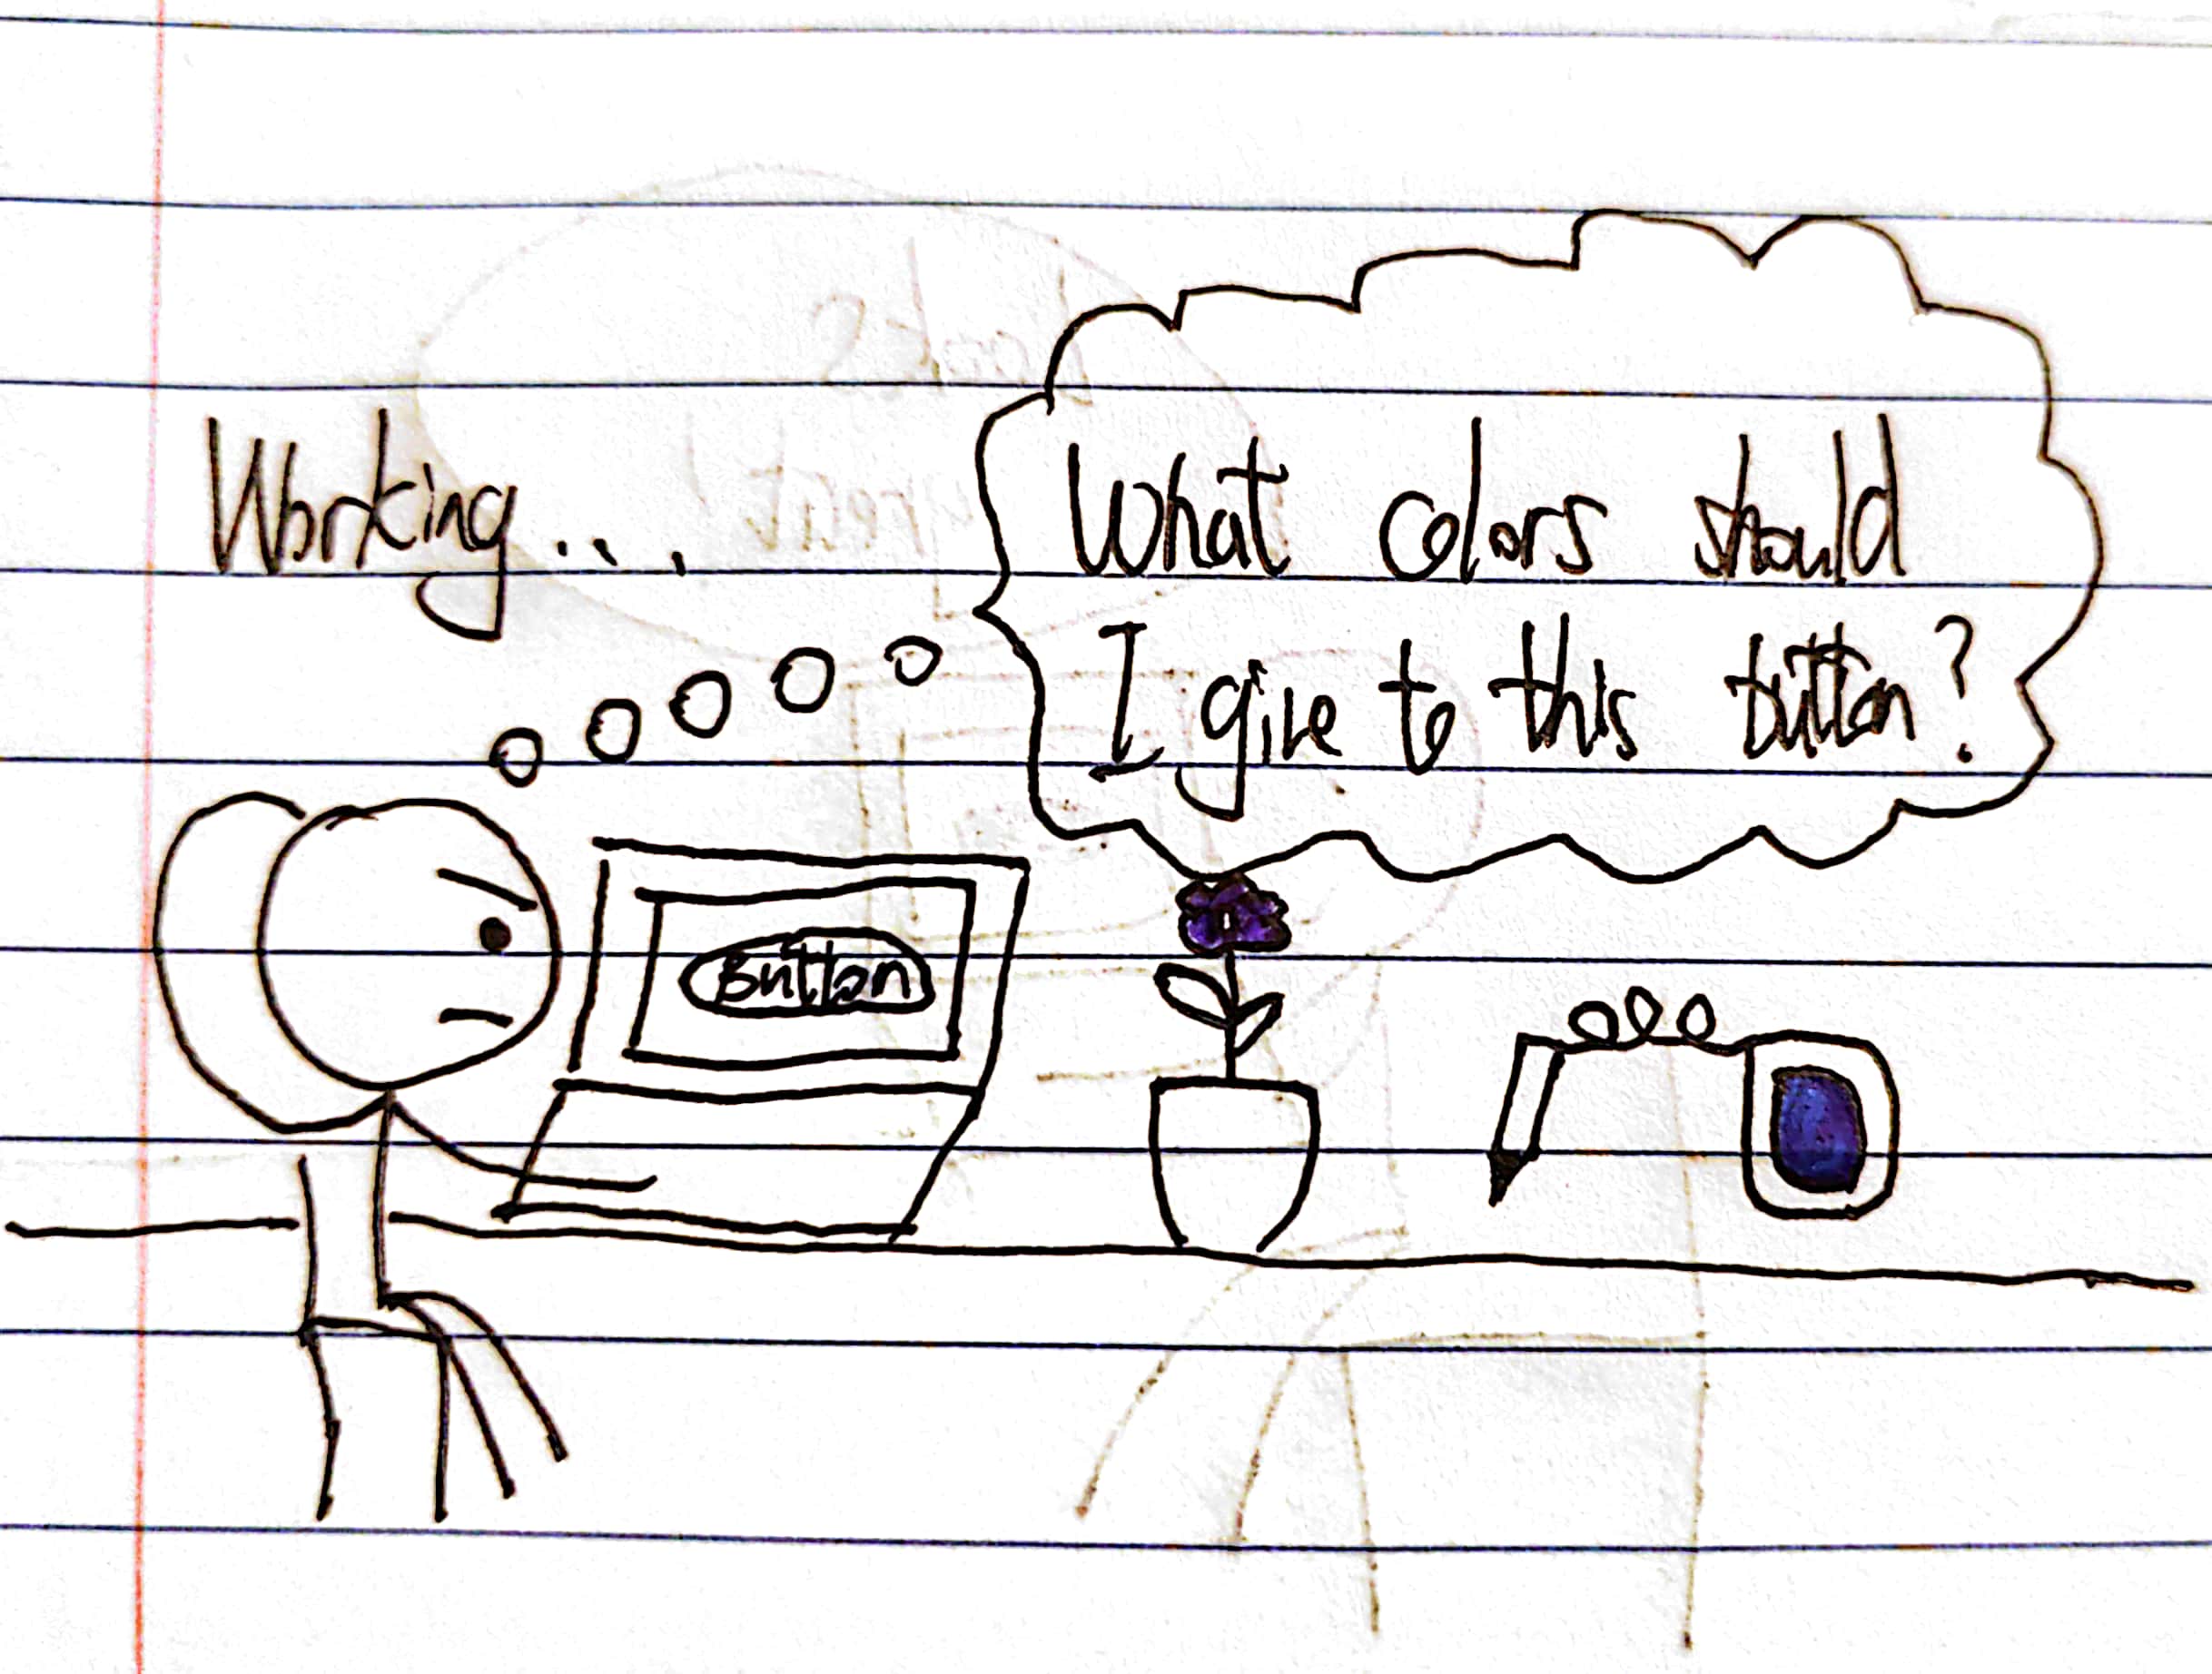 Working...
What colors should
I give to this button?
Button